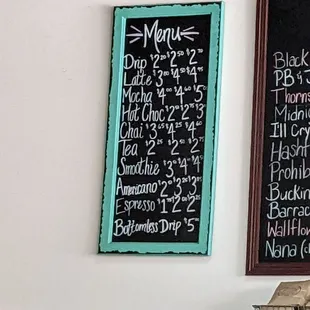 Menu
Drip 2.20 2.50 2.70
Latte 3.00 4.50 4.75
Mocha 4.00 4.60 5
Hot Choc 2.00 2.75 3
Chai 3.65 4.25 4.60
Tea 2 2.25 2.75
Smoothie 3 4 4
Americano 2 3 3
Espresso 1 2 2
Bottomless Drip $5
Black
P.B & J
Thorns
Midni
Ill Cry
Hash
Prohib
Buckin
Barrac
Wallflow
Nana